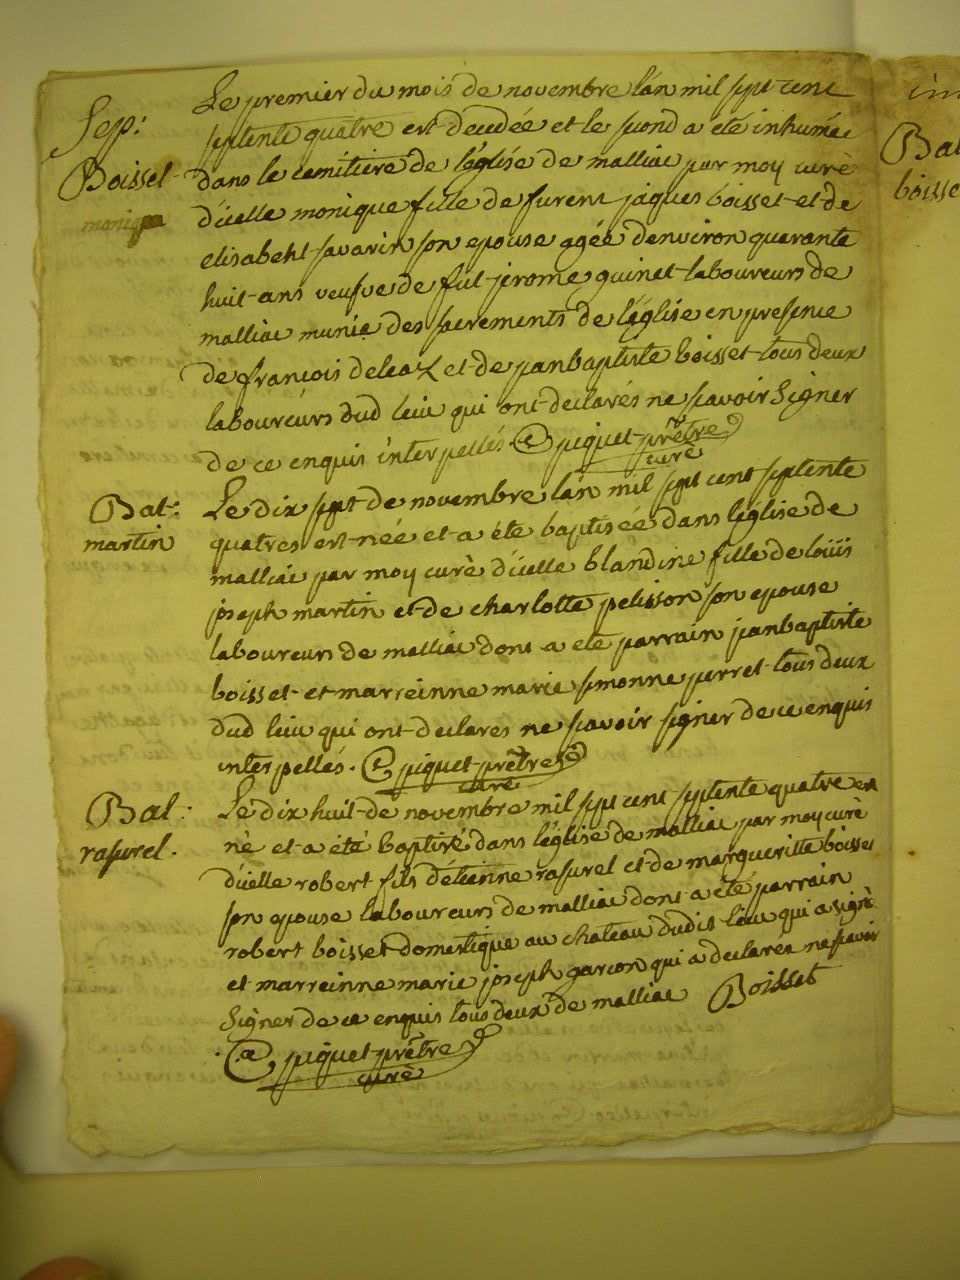 Sep:
Boisset
monique
Le premier du mois de novembre l'an mil sept cent
septente quatre est decedée et le second a été inhumée
dans le cemitiere de l'église de malliac par moy curè
d'icelle monique fille de furent jaques boisset et de
elisabeht savarin son epouse agée denviron quarante
huit ans veufve de fut jerome guinet laboureurs de
malliac munie des sacrements de l'église en presence
de françois deleaz et de janbaptiste boisset tous deux
laboureurs dud leiu qui ont declarés ne scavoir signer
de ce enquis interpellés. piquet prêtre
curè
Bat:
martin
Le dix sept de novembre l'an mil sept cent septente
quatres est née et a éte baptisée dans l'église de
malliac par moy curè d'icelle blandine fille de loüis
joseph martin et de charlotte pelisson son epouse
laboureurs de malliac dont a eté parrain janbaptiste
boisset et marreinne marie simonne perret tous deux
dud leiu qui ont declares ne scavoir signer de ce enquis
interpellés. piquet prêtre
curè
Bat:
rasurel.
Le dix huit de novembre mil sept cent septente quatre est
nè et a été baptisé dans l'église de malliac par moy curè
d'icelle robert fils d'étienne rasurel et de margueritte boisset
son epouse laboureurs de malliac dont a eté parrain
robert boisset domestique au chateau dudit leiu qui a signé
et marreinne marie joseph garcon qui a declarer ne scavoir
signer de ce enquis tous deux de malliac Boisset
piquet prêtre
curè
Bat
boisse